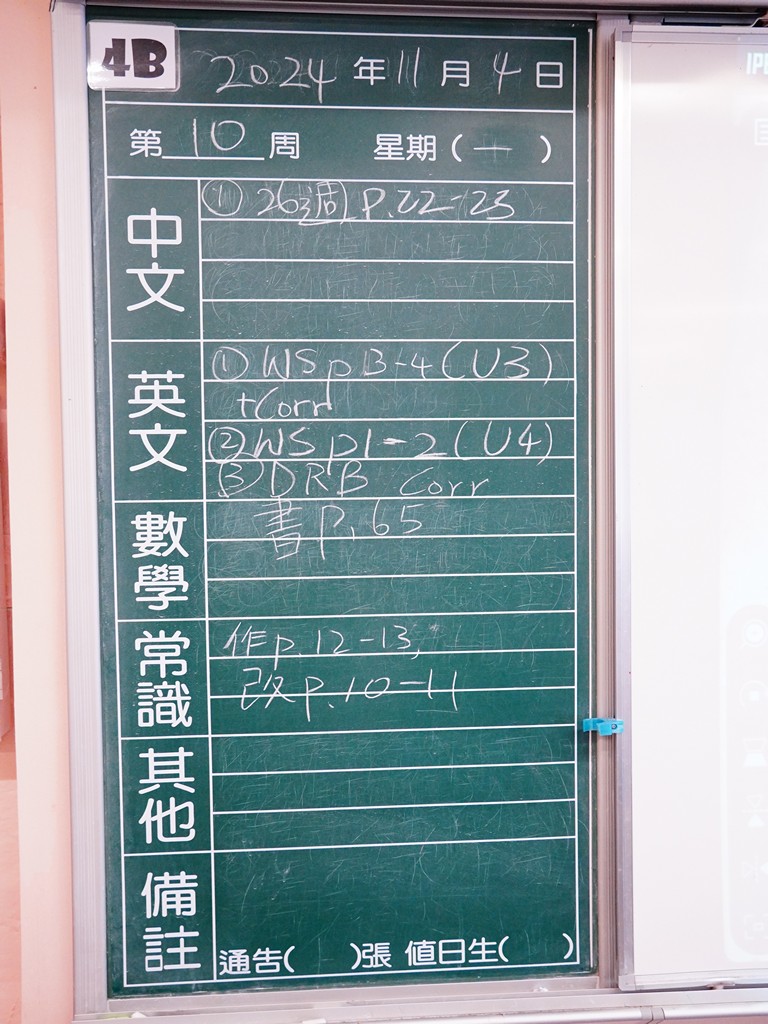 4B
2024年11月4日
第10周 星期(一)
中文
① 26週 p.22-23
英文
① WS p3-4 (U3)
+Corr
② WS p1-2 (U4)
③ DRB Corr
數學
書p.65
常識
作p.12-13,
改p.10-11
其他
備註
通告( )張 值日生( )